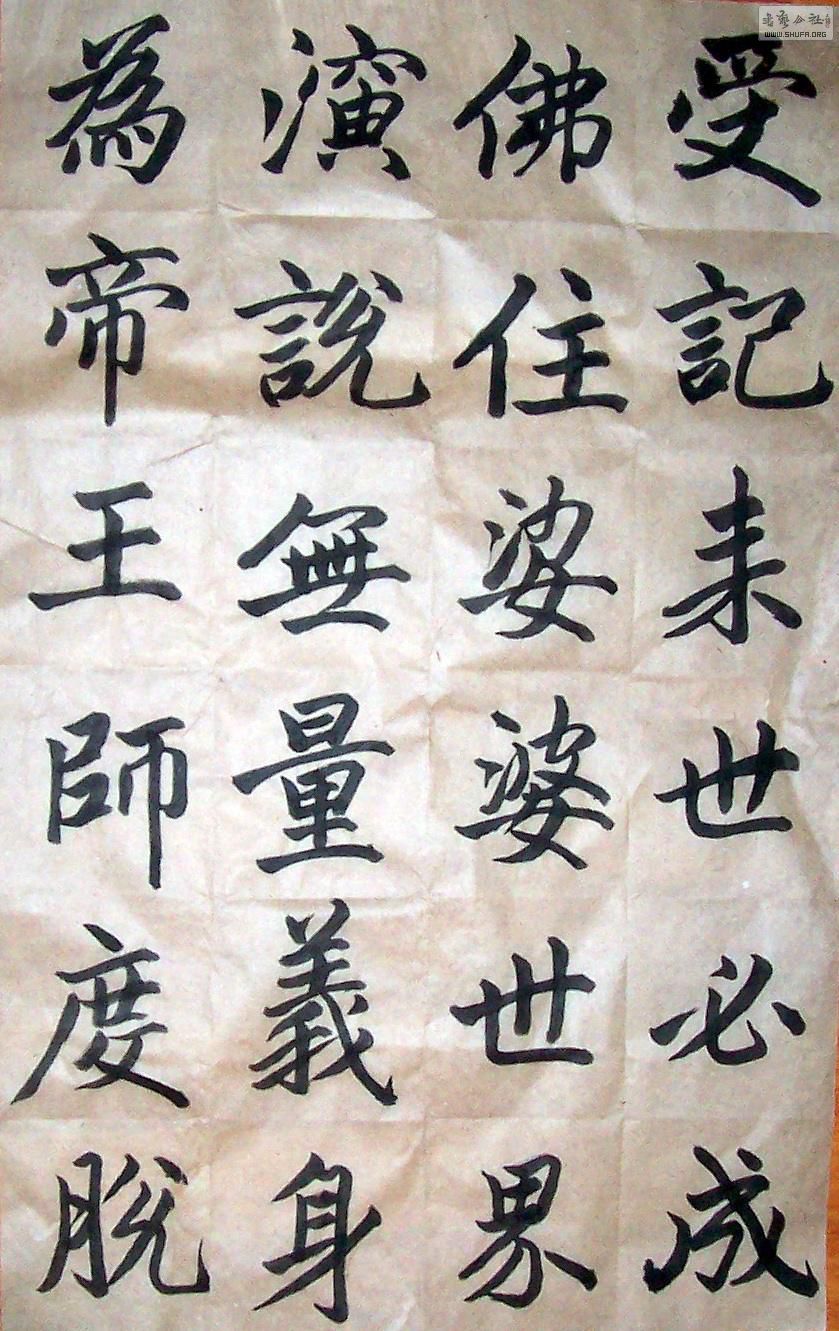 受記来世必成
佛住娑婆世界
演說無量義身
為帝王師度脫
書藝公社
WWW.SHUFA.ORG